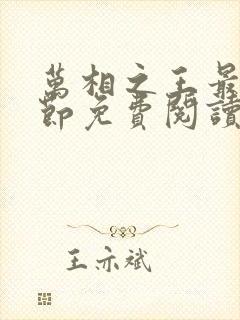 萬相之王最
節免費閱讀
王亦斌